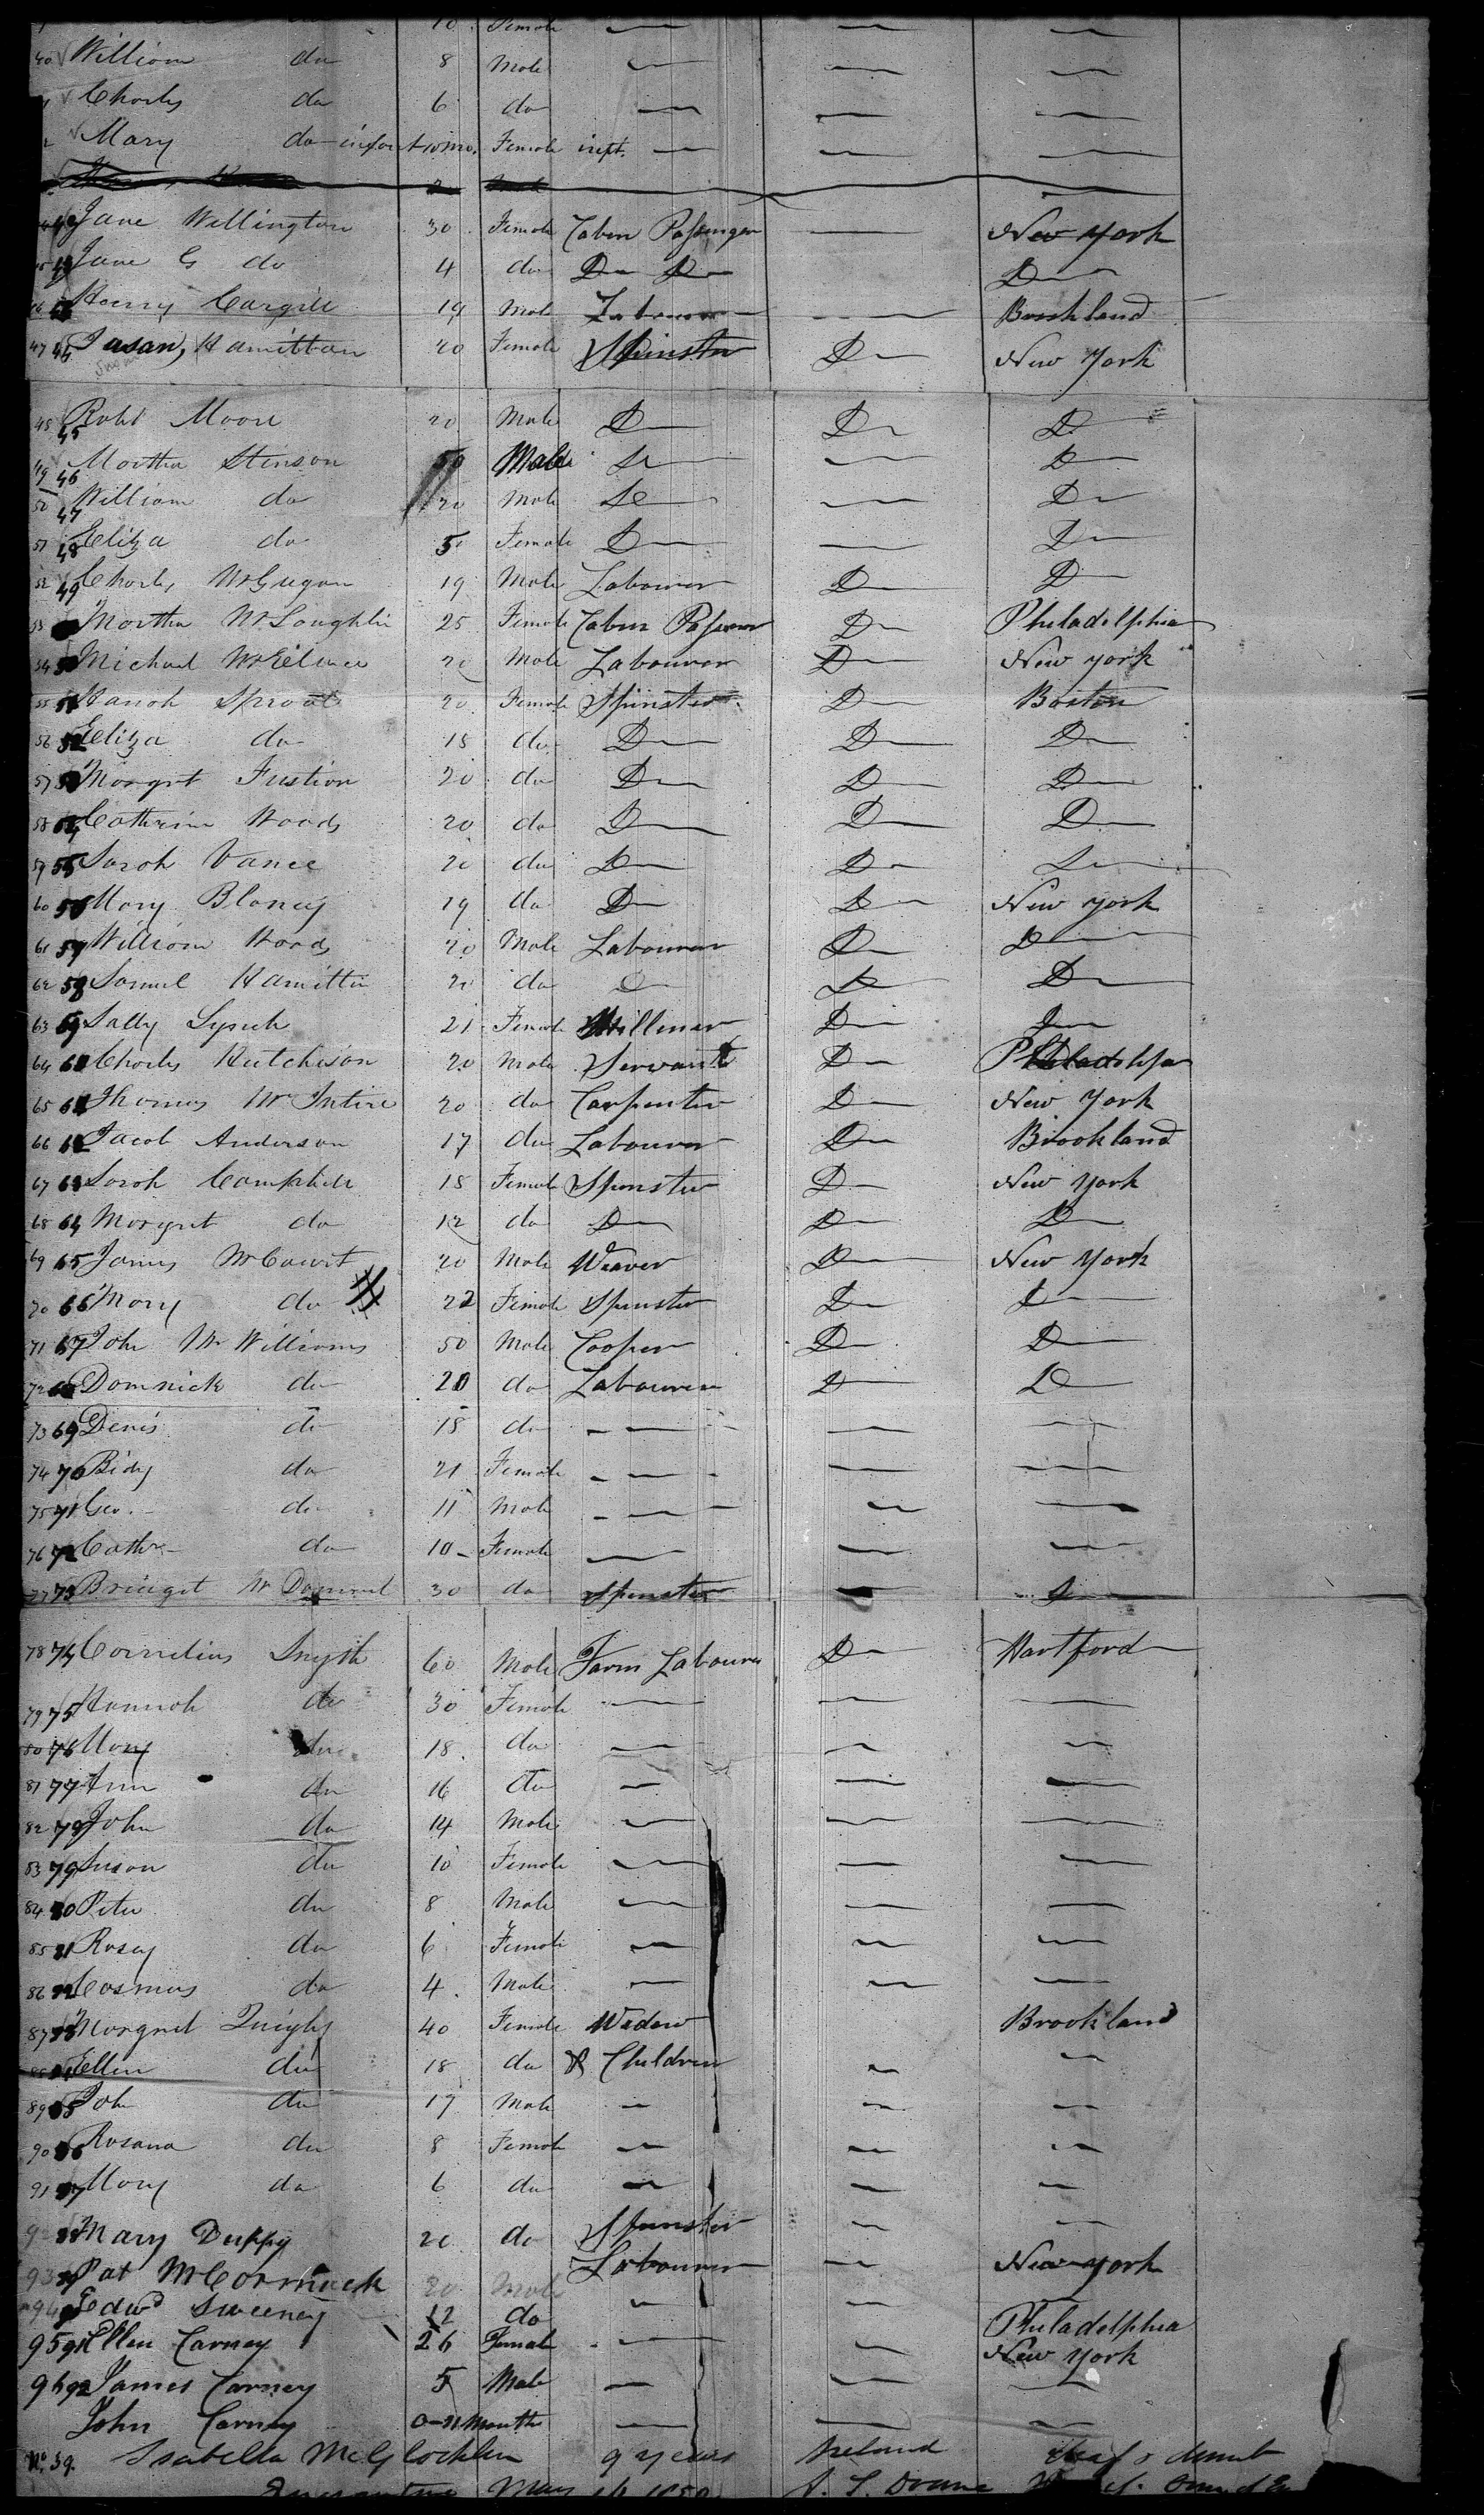 10 Female
40 William do 8 Male
Charles do 6 do
Mary do infant 10 mo. Female inft.
Jane Wellington 30 Female Caben Passenger New York
Jane G do 4 do Do Do Do
46 Henry Cargill 19 Male Labourer Brookland
47 44 Susan Hamilton 20 Female Spinster Do New York
48 45 Robt Moore 20 Male Do Do Do
49 46 Martha Stinson 50 Male Do Do
50 47 William do 20 Male Do Do
51 48 Eliza do 5 Female Do Do
52 49 Charles McGugan 19 Male Labourer Do Do
53 Martha McLaughlin 25 Female Caben Do Philadelphia
54 50 Michael 20 Male Labourer Do New york
55 51 Hanah Sproat 20 Female Spinster Do Boston
56 52 Eliza do 18 do Do Do Do
57 53 Margrt 20 do Do Do Do
58 54 Catherine Woods 20 do Do Do Do
59 55 Sarah Vance 20 do Do Do Do
60 56 Mary Blaney 19 do Do Do New york
61 57 William Woods 20 Male Labourer Do Do
62 58 Samuel Hamilton 20 do Do Do Do
63 59 Sally Lynch 21 Female Milliner Do Do
64 60 Charles Hutchison 20 Male Servant Do Philadelpa
65 61 Thomas McIntire 20 do Carpenter Do New York
66 62 Jacob Anderson 17 do Labourer Do Brookland
67 63 Sarah Campbell 18 Female Spinster Do New York
68 64 Margret do 12 do Do Do Do
69 65 James McCourt 20 Male Weaver Do New York
70 66 Mary do 22 Female Spinster Do Do
71 67 John McWilliams 50 Male Cooper Do Do
72 68 Domnick do 20 do Labourer Do Do
73 69 Denis do 18 do
74 70 Bidy do 21 Female
75 71 Geo. do 11 Male
76 72 Cathr do 10 Female
77 73 Bridget 30 do Spinster Do
78 74 Cornelius Smyth 60 Male Farm Labourer Do Hartford
79 75 Hannah do 30 Female
80 76 Mary do 18 do
81 77 Ann do 16 do
82 78 John do 14 Male
83 79 Susan do 10 Female
84 80 Peter do 8 Male
85 81 Rosey do 6 Female
86 82 Cosmus do 4 Male
87 83 Margret Quigly 40 Female Widow Brookland
88 84 Ellen do 18 do & Children
89 85 John do 17 Male
90 86 Rosana do 8 Female
91 87 Mary do 6 do
92 88 Mary Duppy 20 do Spinster
93 89 Pat McCormick 20 Male Labourer New york
94 90 Edwd Sweeney 12 do Philadelphia
95 91 Ellen Carney 26 Female New York
96 92 James Carney 5 Male
John Carney 0-11 Months
No. 39. Isabella McGlocklin 9 years Ireland deaf & dumb
May